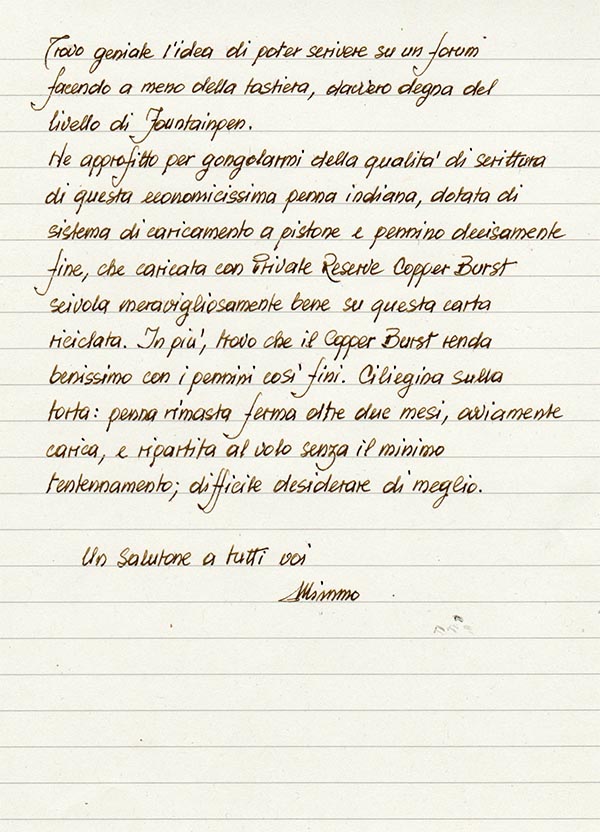 Trovo geniale l'idea di poter scrivere su un forum
facendo a meno della tastiera, davvero degna del
livello di Fountainpen.
Ne approfitto per gongolarmi della qualita' di scrittura
di questa economicissima penna indiana, dotata di
sistema di caricamento a pistone e pennino decisamente
fine, che caricata con Private Reserve Copper Burst
scivola meravigliosamente bene su questa carta
riciclata. In piu', trovo che il Copper Burst renda
benissimo con i pennini cosi' fini. Ciliegina sulla
torta: penna rimasta ferma oltre due mesi, ovviamente
carica, e ripartita al volo senza il minimo
tentennamento; difficile desiderare di meglio.
Un salutone a tutti voi
Mimmo